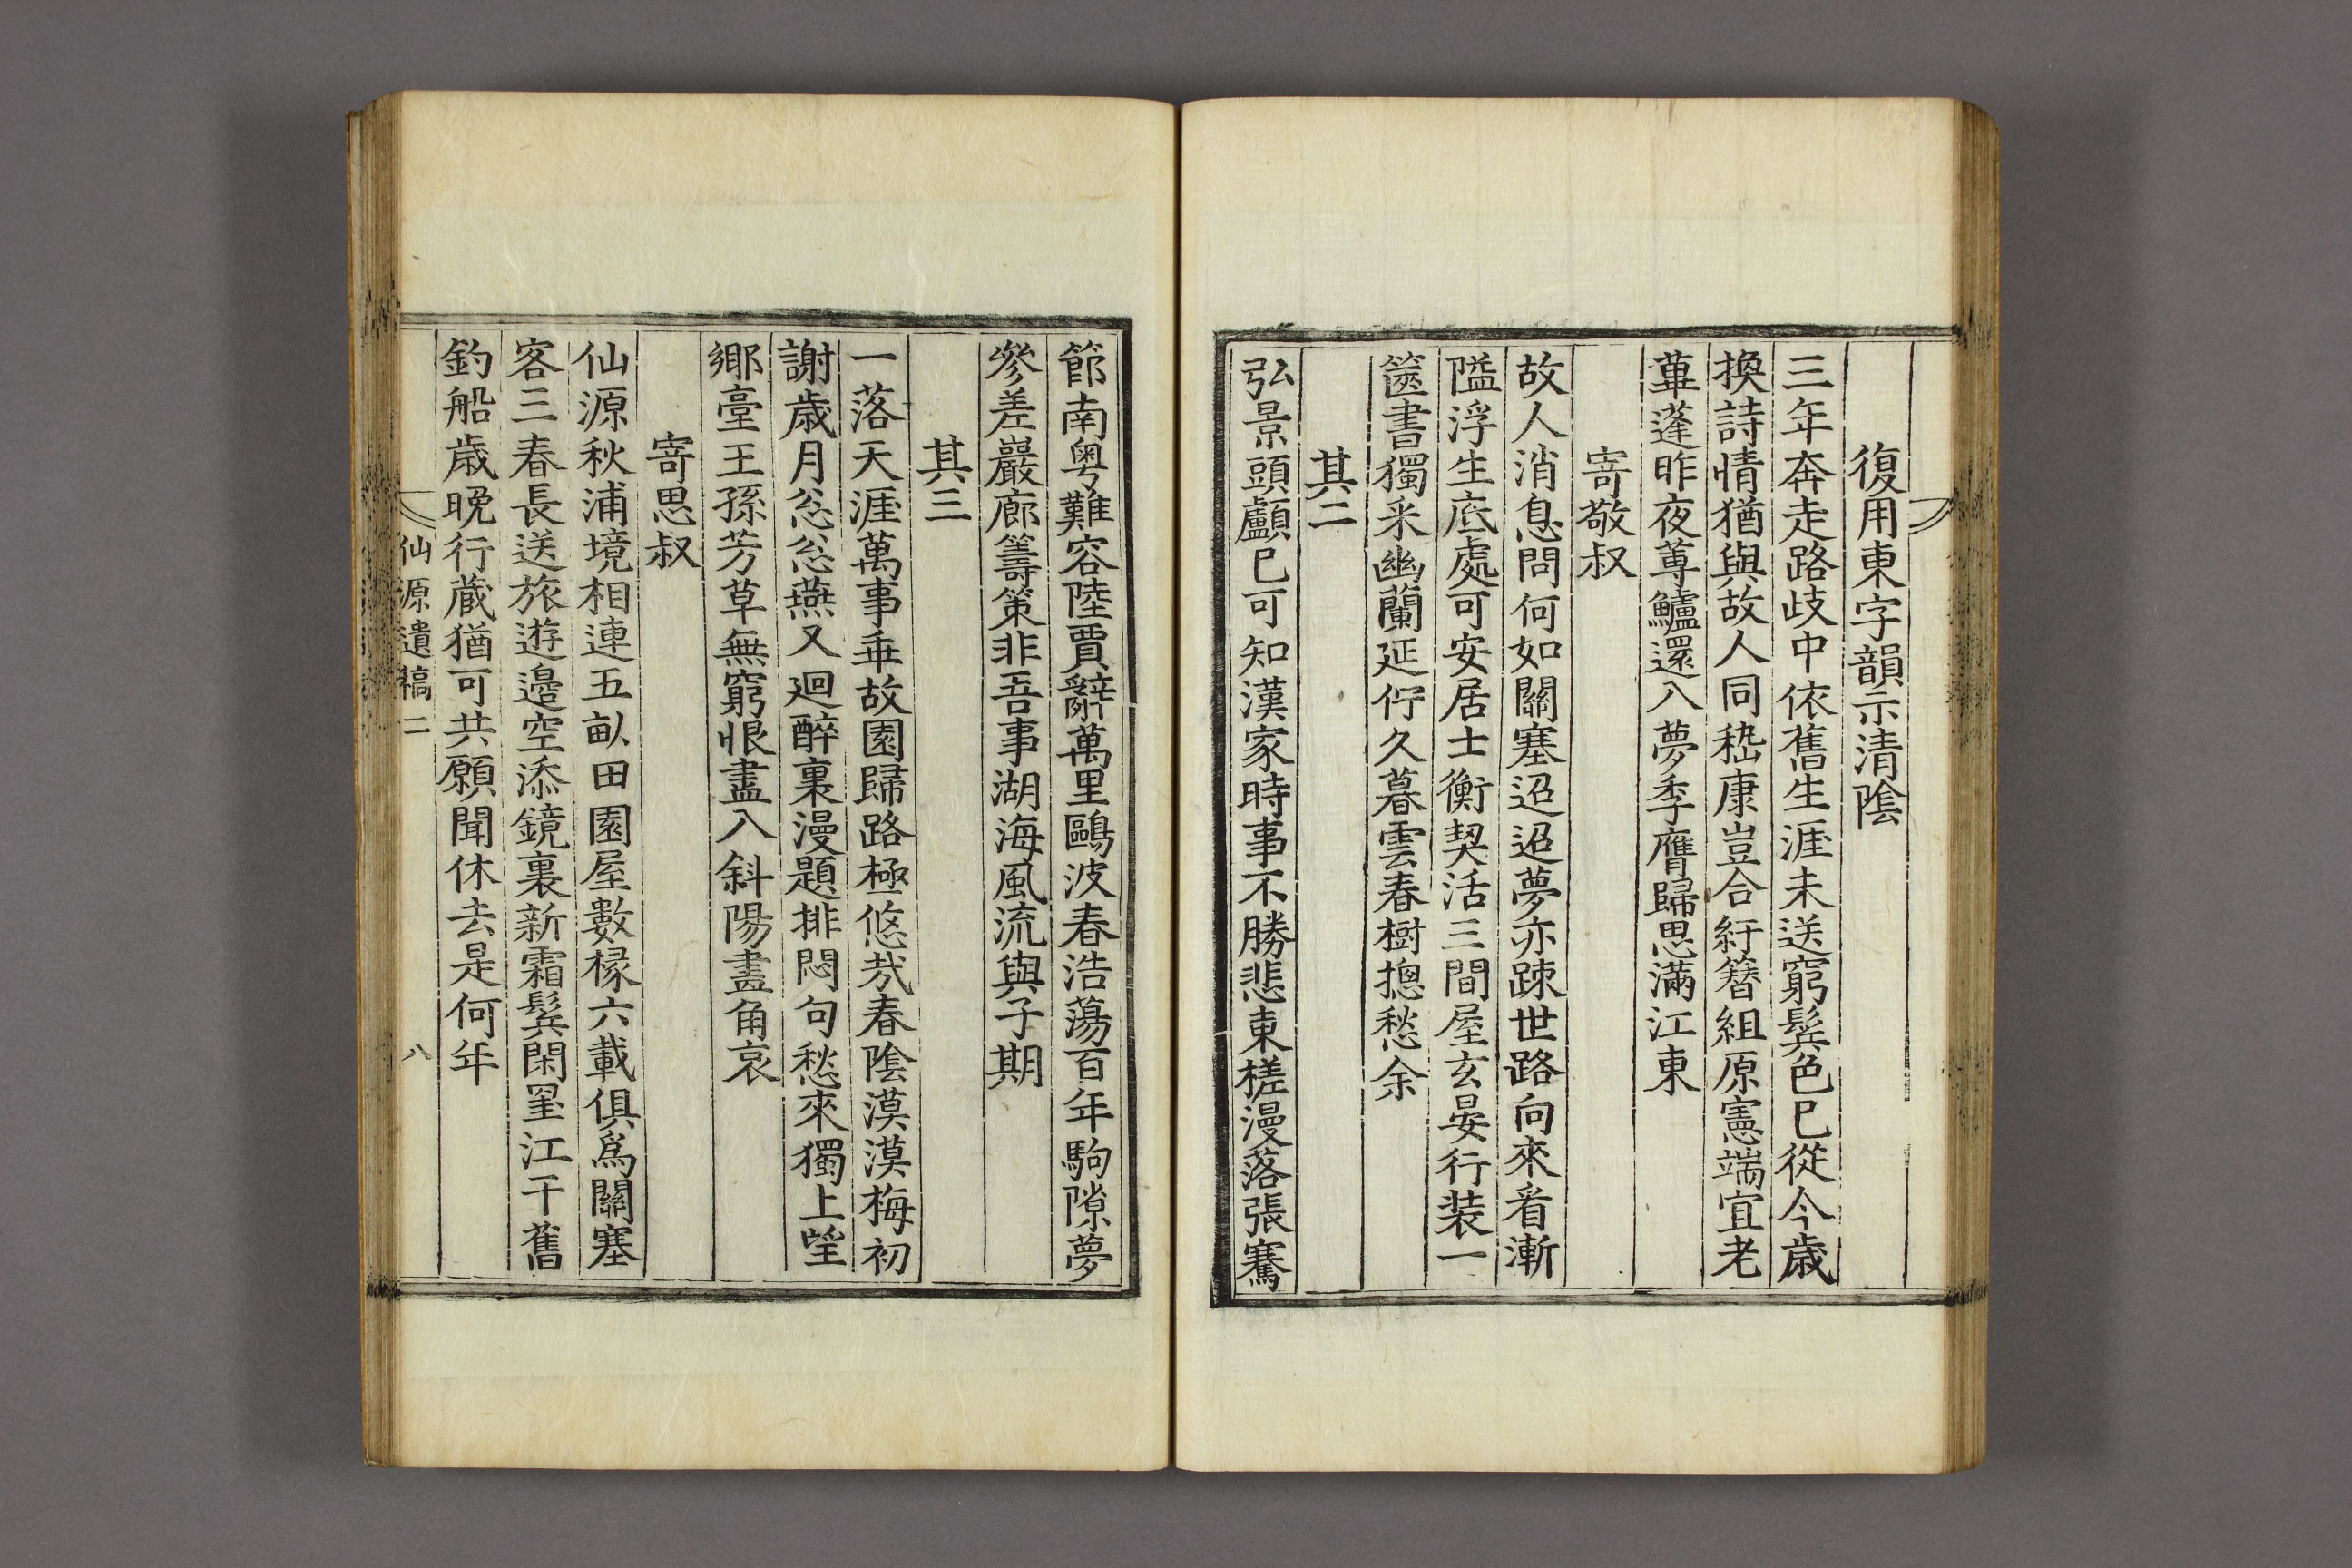 復用東字韻示清陰
三年奔走路歧中依舊生涯未送窮鬂色已從今歲
換詩情猶與故人同嵇康豈合紆簪組原憲端宜老
蓽蓬昨夜蓴鱸還入夢季膺歸思滿江東
寄敬叔
故人消息問何如關塞迢迢夢亦踈世路向來看漸
隘浮生底處可安居士衡契活三間屋玄晏行装一
篋書獨采幽蘭延佇久暮雲春樹摠愁余
其二
弘景頭顱已可知漢家時事不勝悲東槎漫落張騫
節南粤難容陸賈辭萬里鷗波春浩蕩百年駒隙夢
參差巖廊籌策非吾事湖海風流與子期
其三
一落天涯萬事乖故園歸路極悠哉春陰漠漠梅初
謝歲月忩忩燕又廻醉裏漫題排悶句愁來獨上望
鄉臺王孫芳草無窮恨盡入斜陽畫角哀
寄思叔
仙源秋浦境相連五畝田園屋數椽六載俱爲關塞
客三春長送旅遊邊空添鏡裏新霜鬂閑罣江干舊
釣船歲晚行藏猶可共願聞休去是何年
仙源遺稿二 八